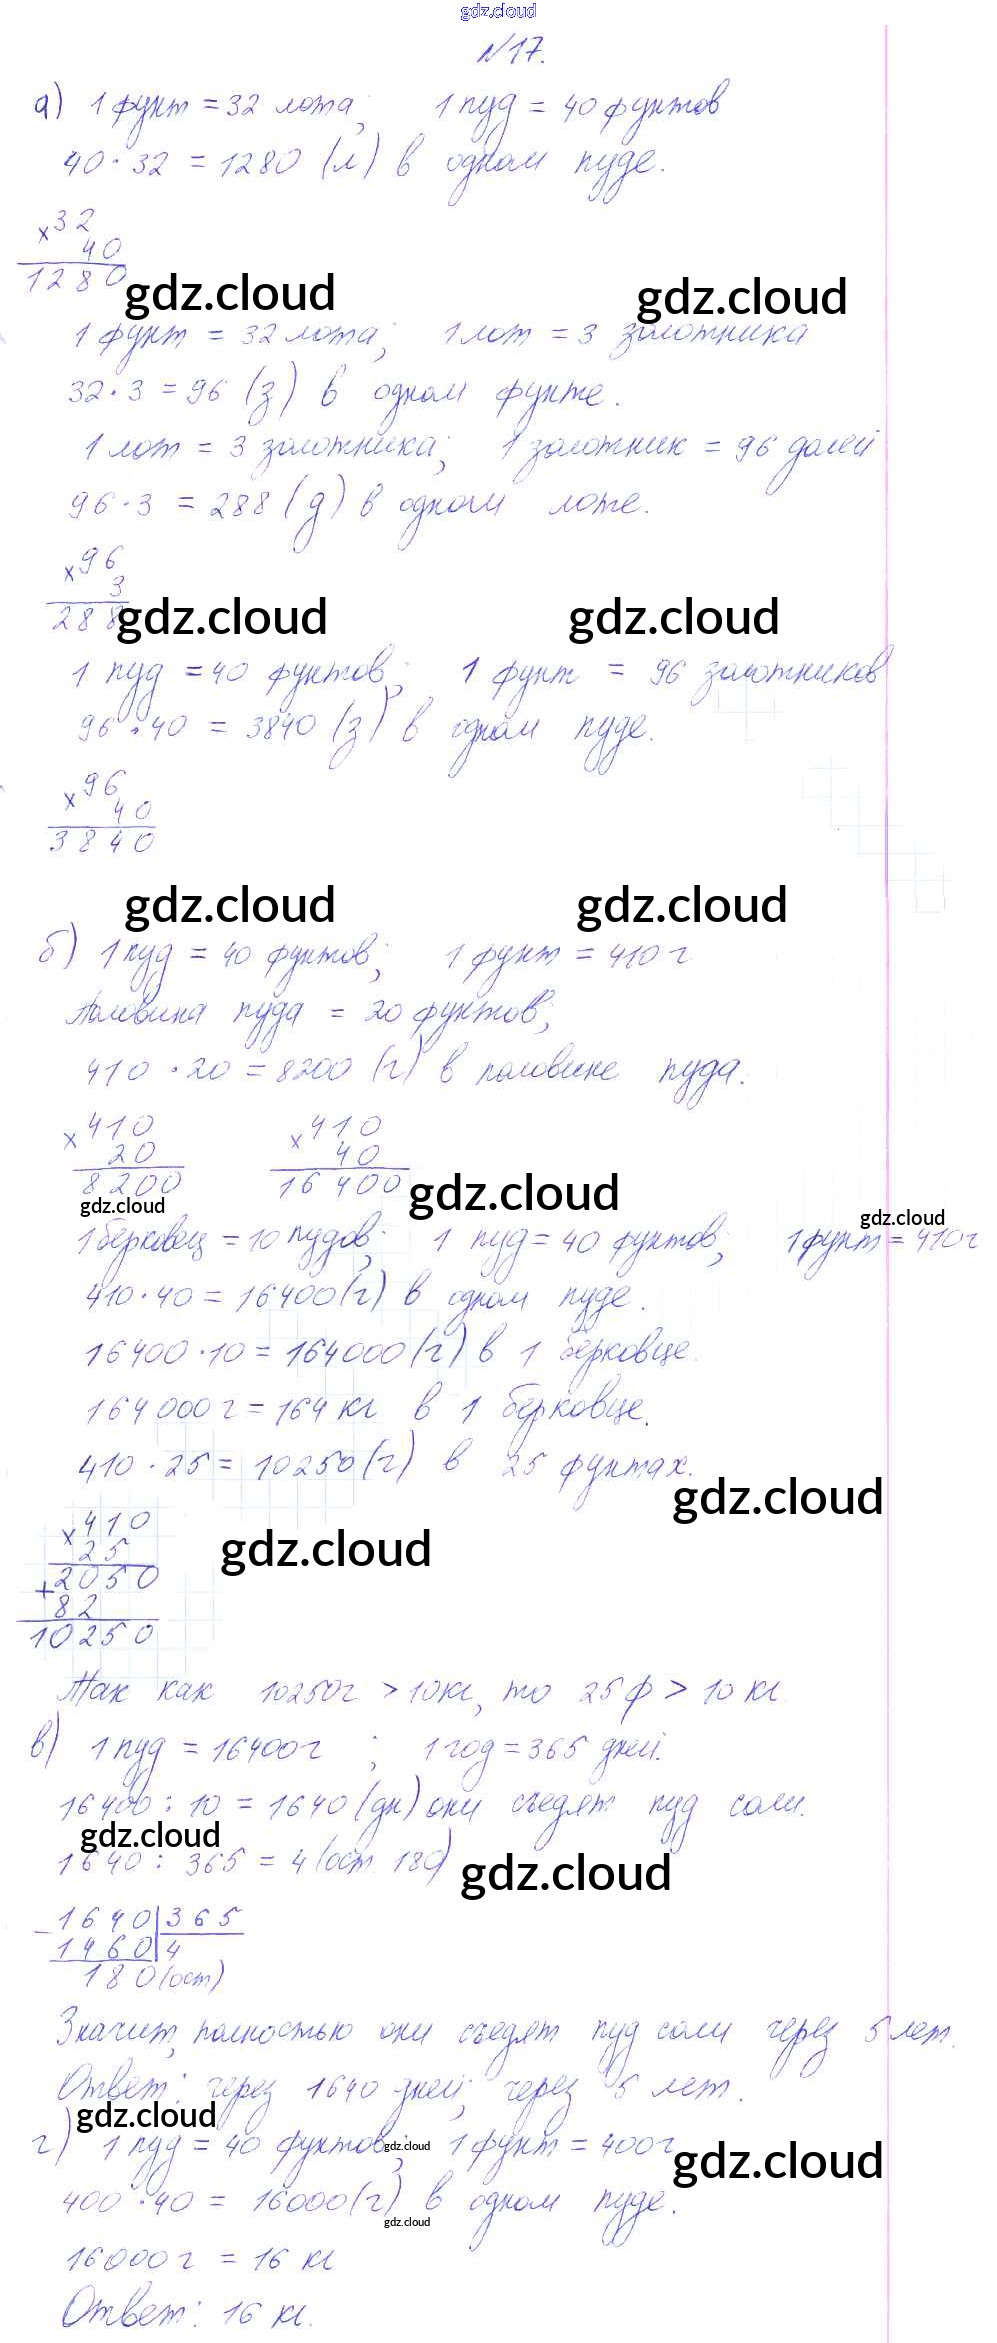 gdz.cloud
№17.
а) 1 фунт = 32 лота; 1 пуд = 40 фунтов
40 · 32 = 1280 (л) в одном пуде.
× 32
40
1280
gdz.cloud gdz.cloud
1 фунт = 32 лота; 1 лот = 3 золотника
32 · 3 = 96 (з) в одном фунте.
1 лот = 3 золотника; 1 золотник = 96 долей
96 · 3 = 288 (д) в одном лоте.
× 96
3
288
gdz.cloud gdz.cloud
1 пуд = 40 фунтов; 1 фунт = 96 золотников
96 · 40 = 3840 (з) в одном пуде.
× 96
40
3840
gdz.cloud gdz.cloud
б) 1 пуд = 40 фунтов; 1 фунт = 410 г
Половина пуда = 20 фунтов;
410 · 20 = 8200 (г) в половине пуда.
× 410 × 410
20 40
8200 16400
gdz.cloud
gdz.cloud gdz.cloud
1 берковец = 10 пудов; 1 пуд = 40 фунтов; 1 фунт = 410 г
410 · 40 = 16400 (г) в одном пуде.
16400 · 10 = 164000 (г) в 1 берковце.
164000 г = 164 кг в 1 берковце.
410 · 25 = 10250 (г) в 25 фунтах.
gdz.cloud
× 410
25
gdz.cloud
+ 2050
82
10250
Так как 10250 г > 10 кг, то 25 ф > 10 кг
в) 1 пуд = 16400 г ; 1 год = 365 дней.
16400 : 10 = 1640 (дн) они съедят пуд соли.
gdz.cloud
1640 : 365 = 4 (ост. 180)
gdz.cloud
- 1640 | 365
1460 | 4
180 (ост)
Значит, полностью они съедят пуд соли через 5 лет.
Ответ: через 1640 дней; через 5 лет.
gdz.cloud
г) 1 пуд = 40 фунтов; 1 фунт = 400 г
gdz.cloud gdz.cloud
400 · 40 = 16000 (г) в одном пуде.
gdz.cloud
16000 г = 16 кг
Ответ: 16 кг.